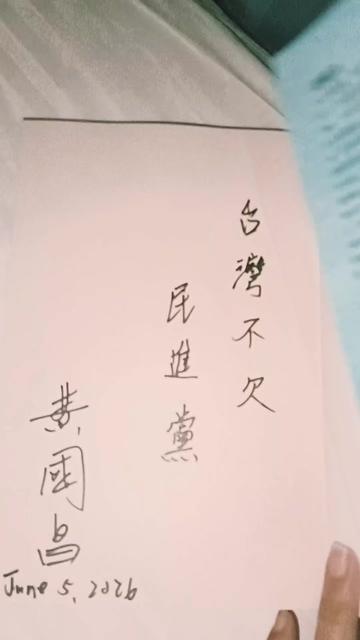 台灣不欠
民進黨
黃國昌
June 5, 2026